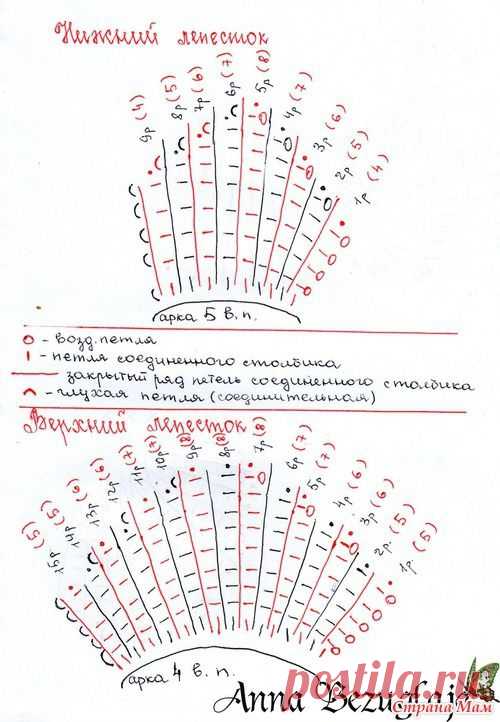 Нижний лепесток
9р (4)
8р (5)
7р (6)
6р (7)
5р (8)
4р (7)
3р (6)
2р (5)
1р (4)
арка 5 в.п.
- возд. петля
- петля соединенного столбика
- закрытый ряд петель соединенного столбика
- глухая петля (соединительная)
Верхний лепесток
15р (5)
14р (5)
13р (6)
12р (6)
11р (7)
10р (7)
9р (8)
8р (8)
7р (8)
6р (7)
5р (7)
4р (6)
3р (6)
2р. (5)
1р (5)
арка 4 в.п.
Anna
postila.ru
Страна Мам